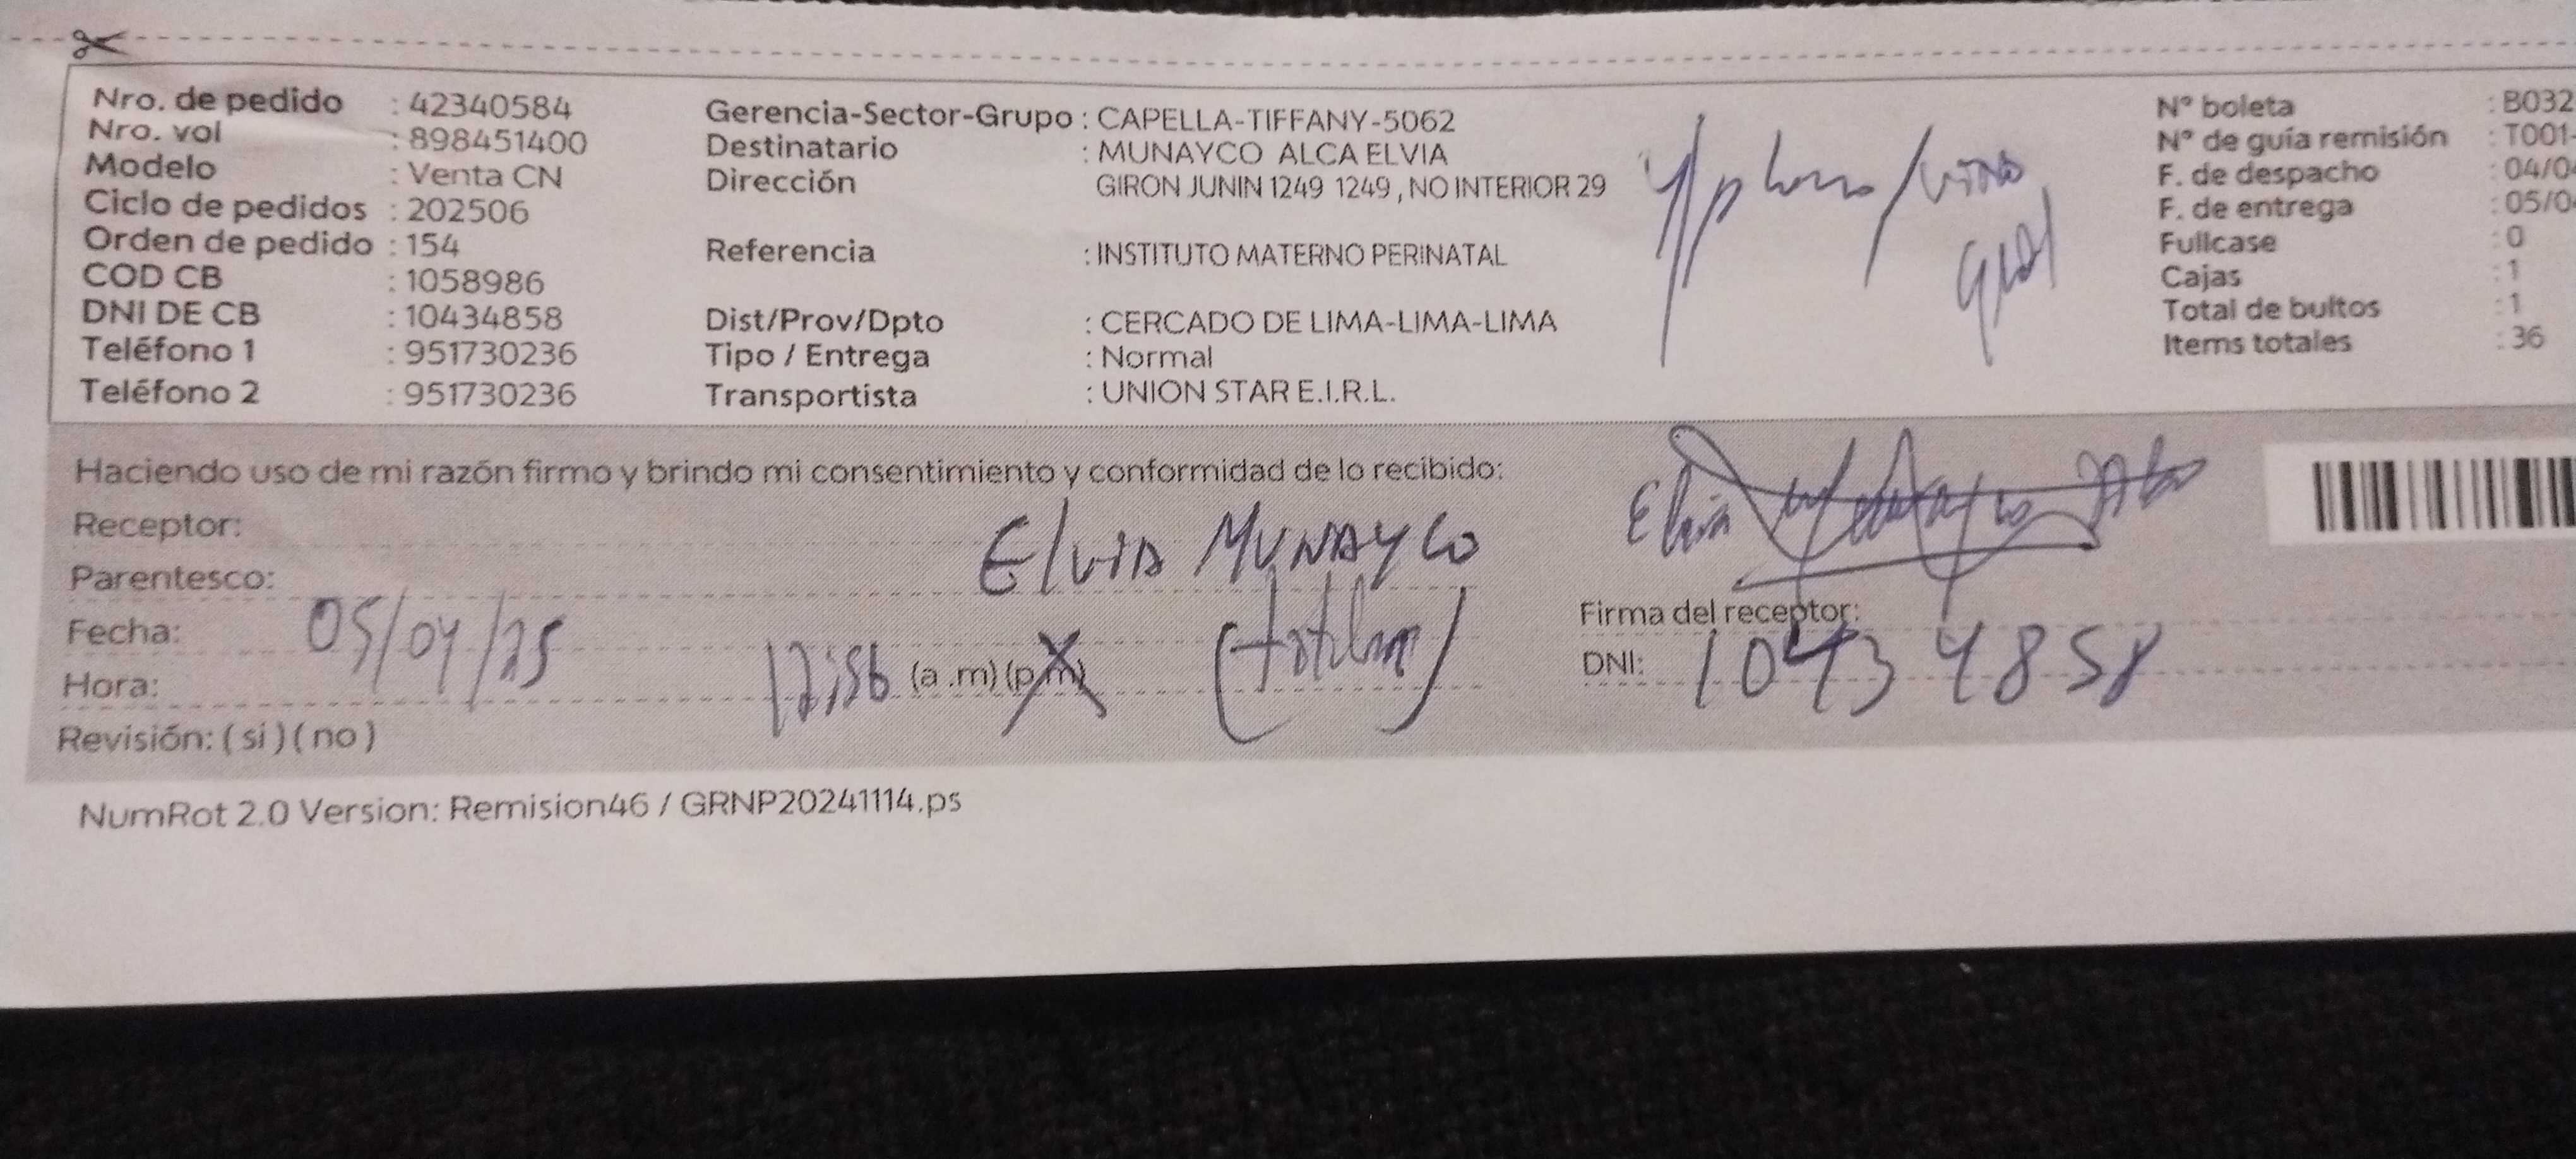 Nro. de pedido : 42340584
Nro. vol : 898451400
Modelo : Venta CN
Ciclo de pedidos : 202506
Orden de pedido : 154
COD CB : 1058986
DNI DE CB : 10434858
Teléfono 1 : 951730236
Teléfono 2 : 951730236
Gerencia-Sector-Grupo : CAPELLA-TIFFANY-5062
Destinatario : MUNAYCO ALCA ELVIA
Dirección GIRON JUNIN 1249 1249 , NO INTERIOR 29
Referencia : INSTITUTO MATERNO PERINATAL
Dist/Prov/Dpto : CERCADO DE LIMA-LIMA-LIMA
Tipo / Entrega : Normal
Transportista : UNION STAR E.I.R.L.
N° boleta : B032
N° de guía remisión : T001-
F. de despacho : 04/04
F. de entrega : 05/04
Fullcase : 0
Cajas : 1
Total de bultos : 1
Items totales : 36
Haciendo uso de mi razón firmo y brindo mi consentimiento y conformidad de lo recibido:
Receptor: Elvia MUNAYCO
Parentesco: (titular)
Fecha: 05/04/25
Hora: 12:56 (a .m) (p.m)
Revisión: ( si ) ( no )
Elvia Munayco
Firma del receptor:
DNI: 10434858
NumRot 2.0 Version: Remision46 / GRNP20241114.ps